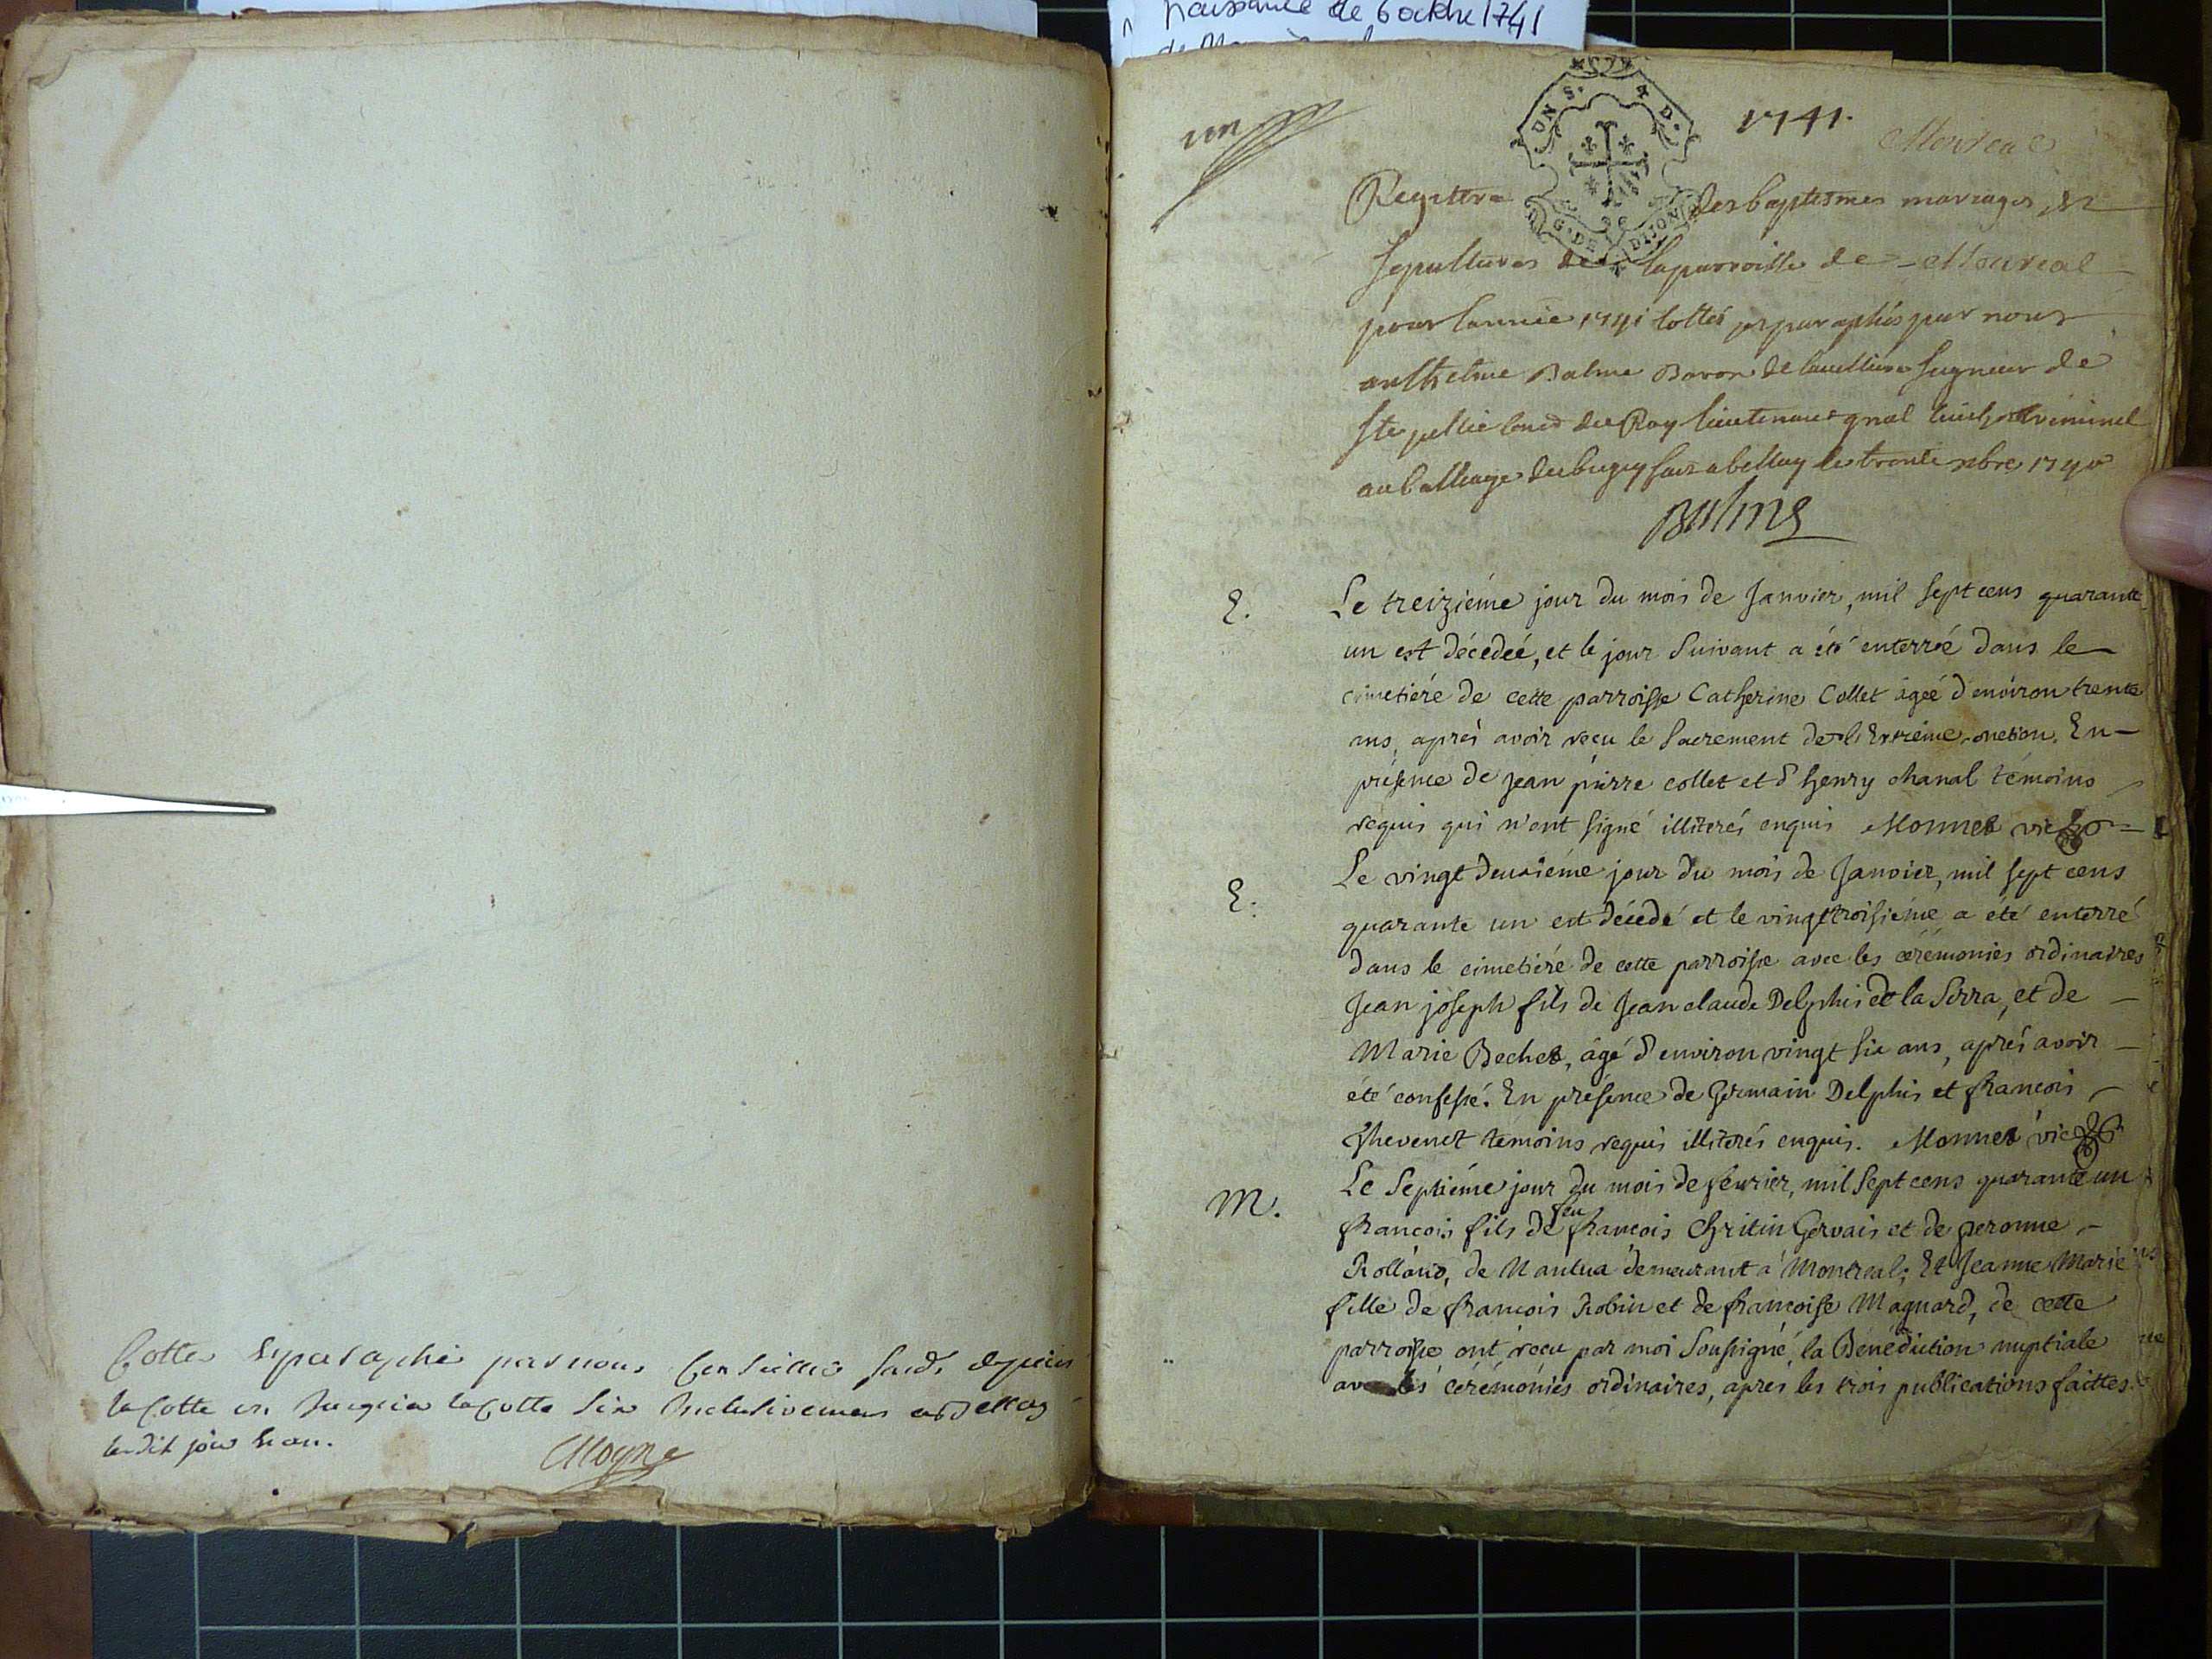 Cotté et paraphé par nous Conseillier susd. depuis
la Cotte un jusqu'a la Cotte six Inclusivement a Belley
ledit jour et an.
Moyne
naissance de 6 octobre 1741
un
1741.
Montreal
G. DE DIJON
Registre des baptesmes mariages et
sepultures de la parroisse de Montreal
pour l'année 1741 cottés et paraphés par nous
anthelme Balme Baron de Seigneur de
Ste jullie Cons. du Roy lieutenant gnal civil et criminel
au balliage du bugey fait a belley le trente xbre 1740
Balme
E.
Le treiziéme jour du mois de Janvier, mil sept cens quarante
un est décedeé, et le jour suivant a été enterreé dans le
cimetiére de cette parroisse Catherine Collet ageé d'environ trente
ans, aprés avoir reçu le Sacrement de l'Extréme-onction. En
présence de Jean pierre collet et d'henry chanal témoins
requis qui n'ont signé illiterés enquis Monnet vic
E.
Le vingt deuxiéme jour du mois de Janvier, mil sept cens
quarante un est décedé et le vingt troisiéme a été enterré
dans le cimetiére de cette parroisse avec les cérémonies ordinaires
Jean joseph fils de Jean claude Delphis de la Serra, et de
Marie Bechet, âgé d'environ vingt six ans, aprés avoir
été confessé. En présence de Germain Delphis et francois
Thevenet témoins requis illiterés enquis. Monnet vic
M.
Le Septiéme jour du mois de février, mil sept cens quarante un
francois fils de feu francois Chritin Gervais et de peronne
Rolland, de Nantua demeurant á Montreal; Et Jeanne Marie
fille de francois Robin et de francoise Magnard, de cette
parroisse ont reçu par moi Soussigné, la Bénédiction nuptiale
avec les cérémonies ordinaires, aprés les trois publications faittes